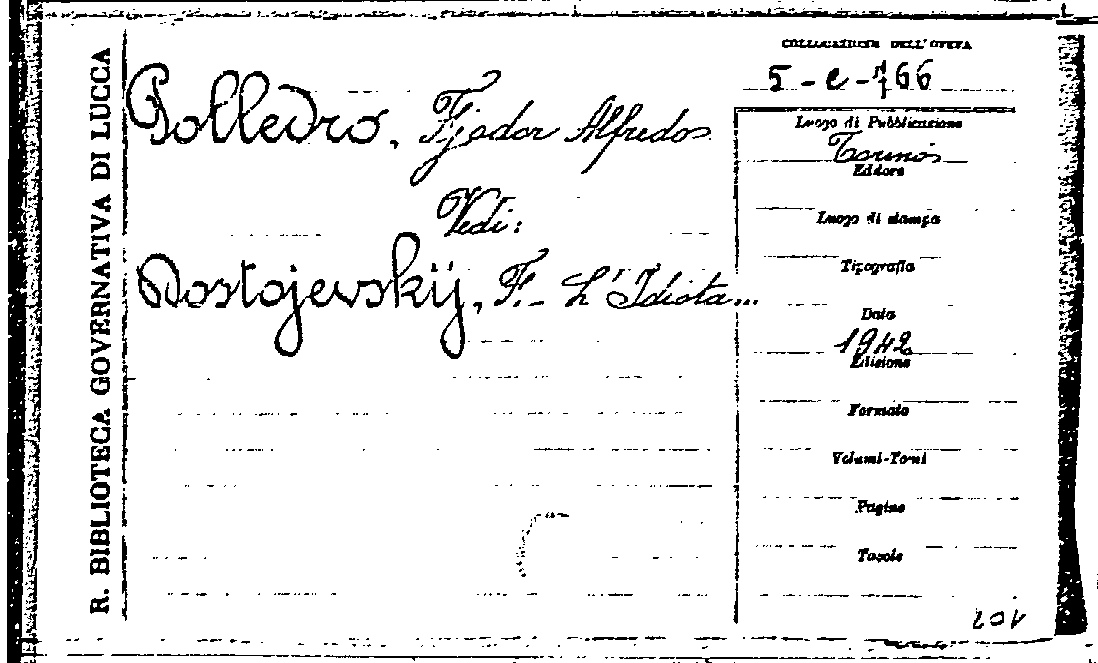 R. BIBLIOTECA GOVERNATIVA DI LUCCA
COLLOCAZIONE DELL'OPERA
5-e-766
Polledro, Fjodor Alfredo
Vedi:
Dostojevskij, F. - L'Idiota...
Luogo di Pubblicazione
Torino
Editore
Luogo di stampa
Tipografia
Data
1942
Edizione
Formato
Volumi-Tomi
Pagine
Tavole